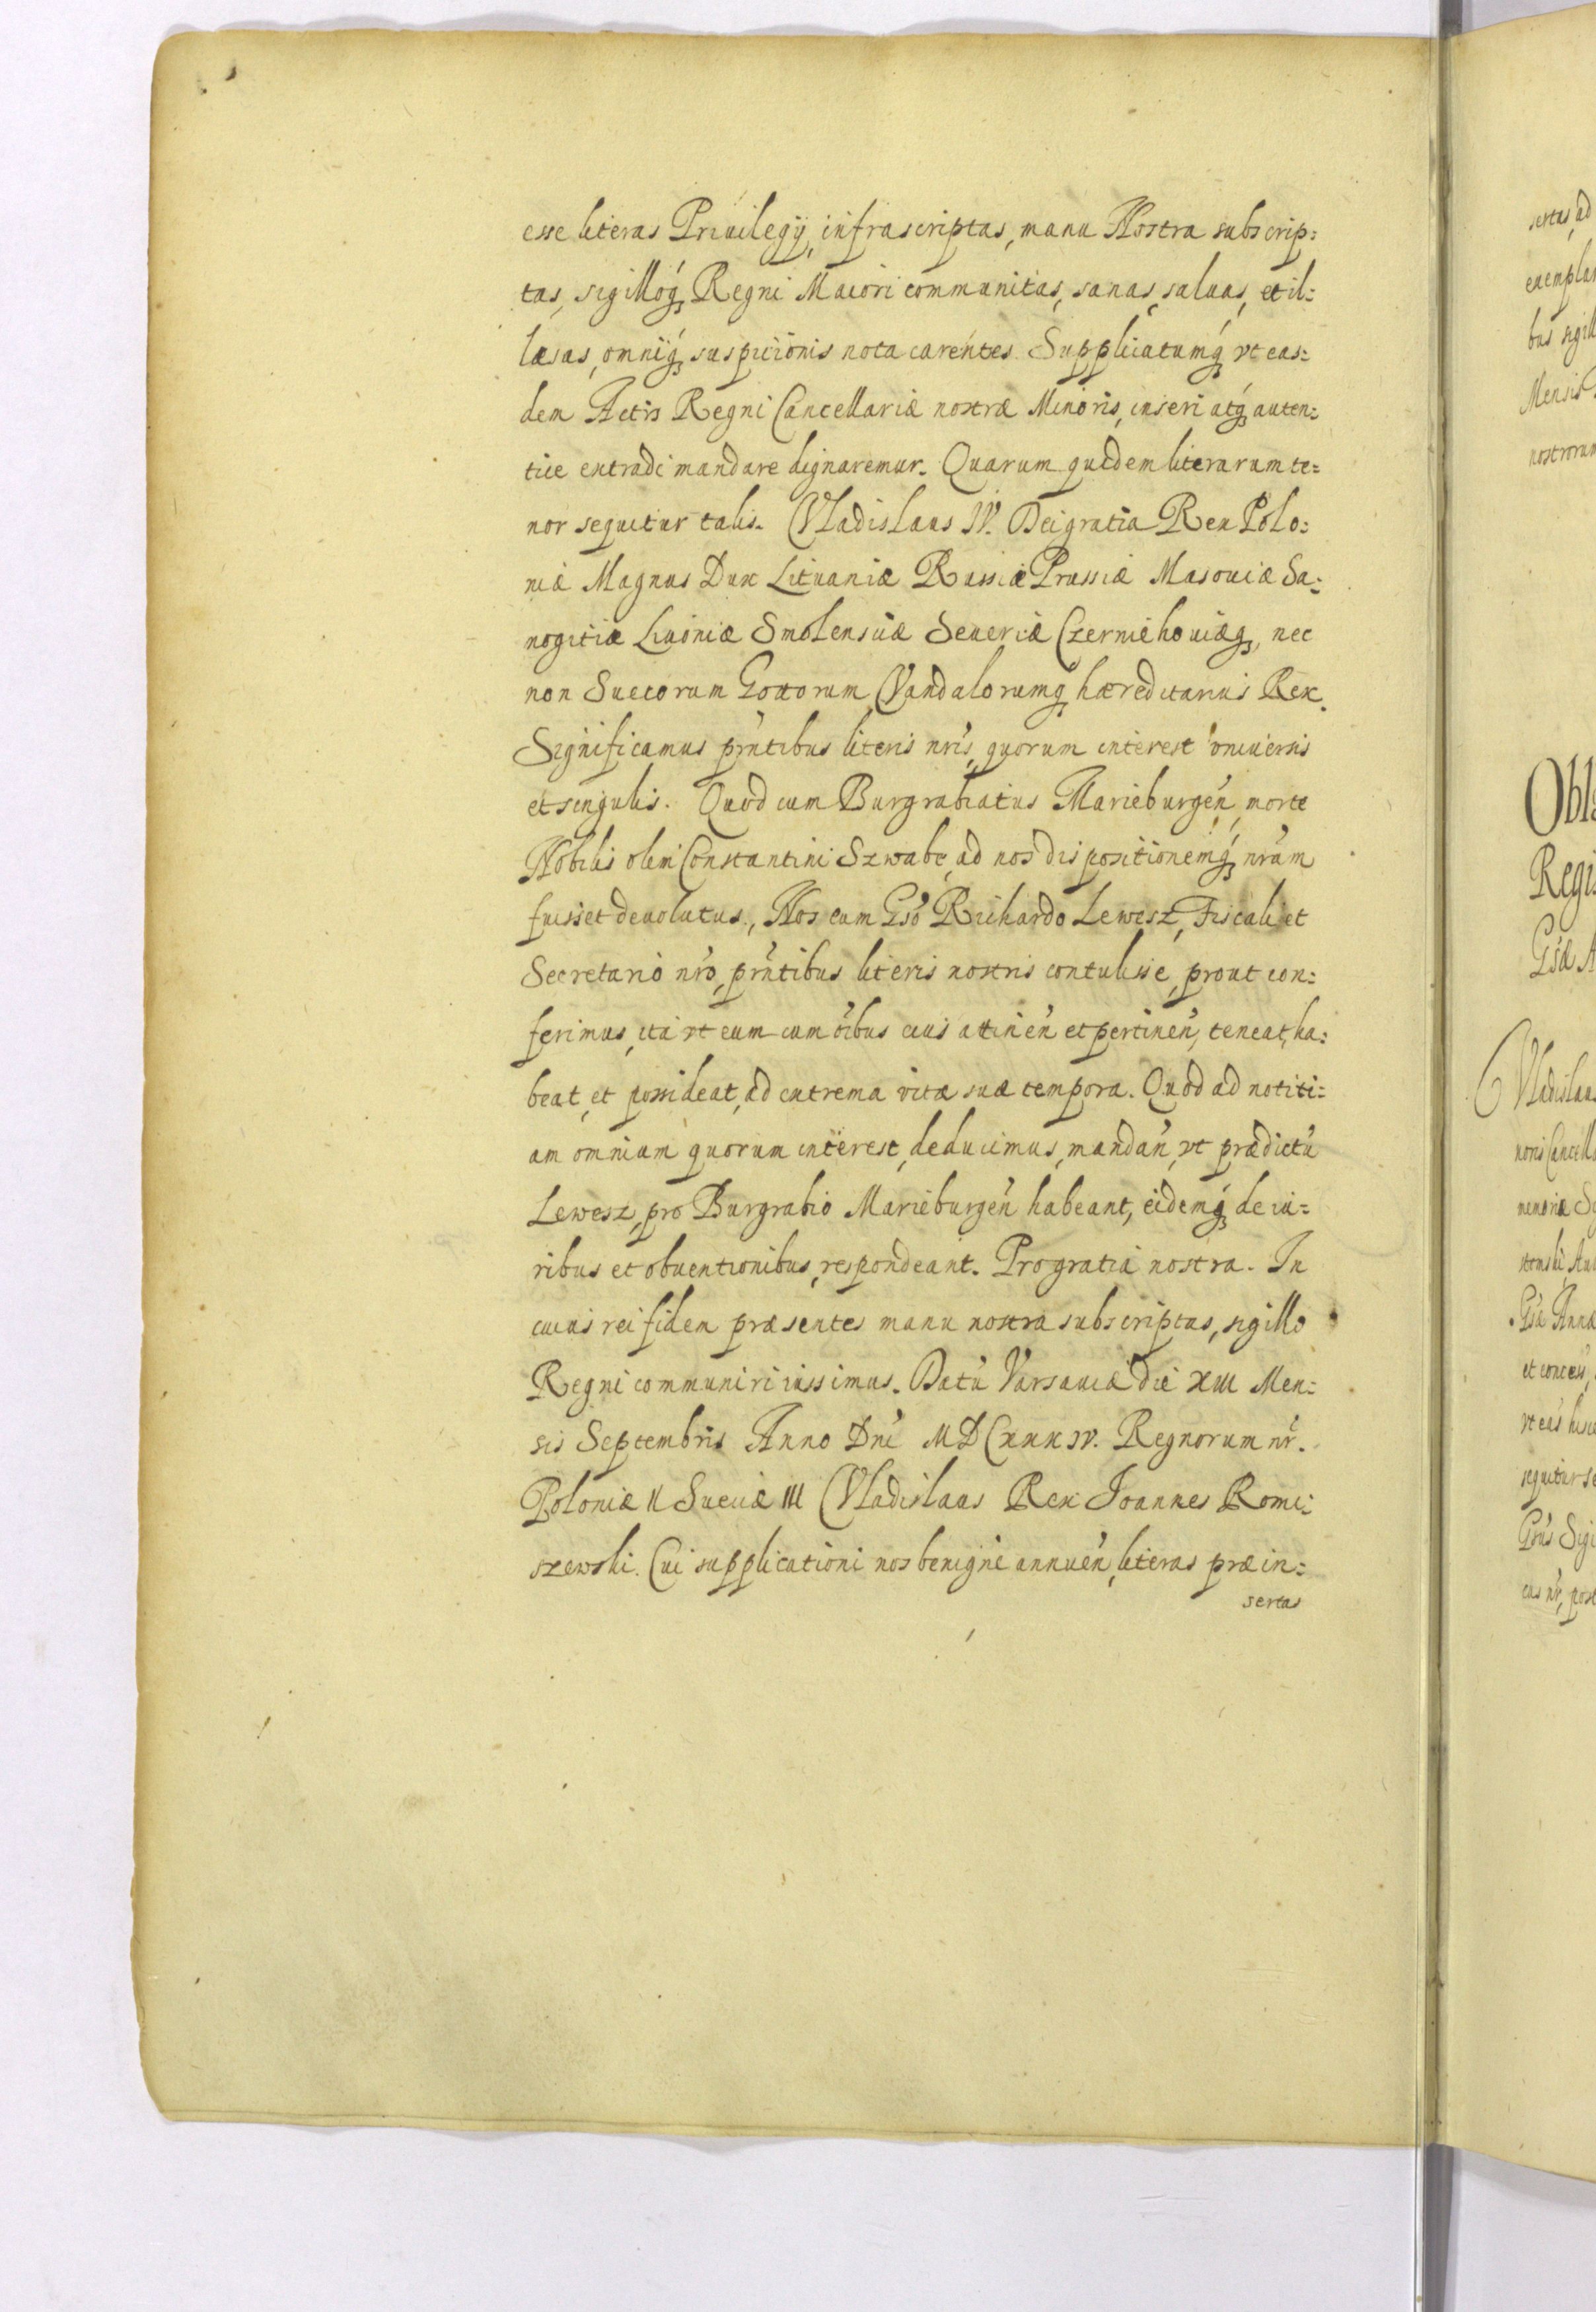 esse literas Priuilegÿ, infrascriptas, manu Nostra subscrip:
tas, sigilloq́ꝫ Regni Maiori communitas, sanas, saluas, et il:
læsas, omniq́ꝫ suspicionis nota carentes. Supplicatumq́ꝫ vt eas:
dem Actis Regni Cancellariæ nostræ Minoris, inseri atq́ꝫ auten:
tice extradi mandare dignaremur. Quarum quidem literarum te:
nor sequitur talis. Vladislaus IV. Dei gratia Rex Polo:
niæ Magnus Dux Lituaniæ Russiæ Prussiæ Masouiæ Sa:
nogitiæ Liuoniæ Smolensciæ Seueriæ Czerniehouiæqꝫ, nec
non Suecorum Gottorum Vandalorumqꝫ hæreditarius Rex.
Significamus pr̃ntibus literis nr̃is, quorum interest vniuersis
et singulis. Quod cum Burgrabiatus Marieburgeñ, morte
Nobilis olim Constantini Szwabe, ad nos dispositionemq́ꝫ nr̃am
fuisset deuolutus, Nos eum Gsõ Richardo Lewesz, Fiscali et
Secretario nr̃o, pr̃ntibus literis nostris contulisse, prout con:
ferimus, ita vt eum cum õibus eius attineñ et pertineñ, teneat, ha:
beat, et possideat, ad extrema vitæ suæ tempora. Quod ad notiti:
am omnium quorum interest, deducimus, mandañ, vt prædictũ
Lewesz, pro Burgrabio Marieburgeñ habeant, eidemq́ꝫ de iu:
ribus et obuentionibus, respondeant. Pro gratia nostra. In
cuius rei fidem præsentes manu nostra subscriptas, sigillo
Regni communiri iussimus. Datũ Varsauiæ die XIII Men:
sis Septembris Anno Dñi MDCXXXIV. Regnorum nr̃.
Poloniæ II Sueciæ III Vladislaus Rex Joannes Romi:
szewski. Cui supplicationi nos benigne annueñ, literas præin:
sertas
sertas, ad
exemplar
bus sigill
Mensis
nostrorum
Obla
Regis
Gsæ A
Vladislaus
noris Cancella
memoriæ Si
Gsæ Annæ
et concess
vt eas hisce
sequitur se
Gsus Sigi
cus nr̃, post